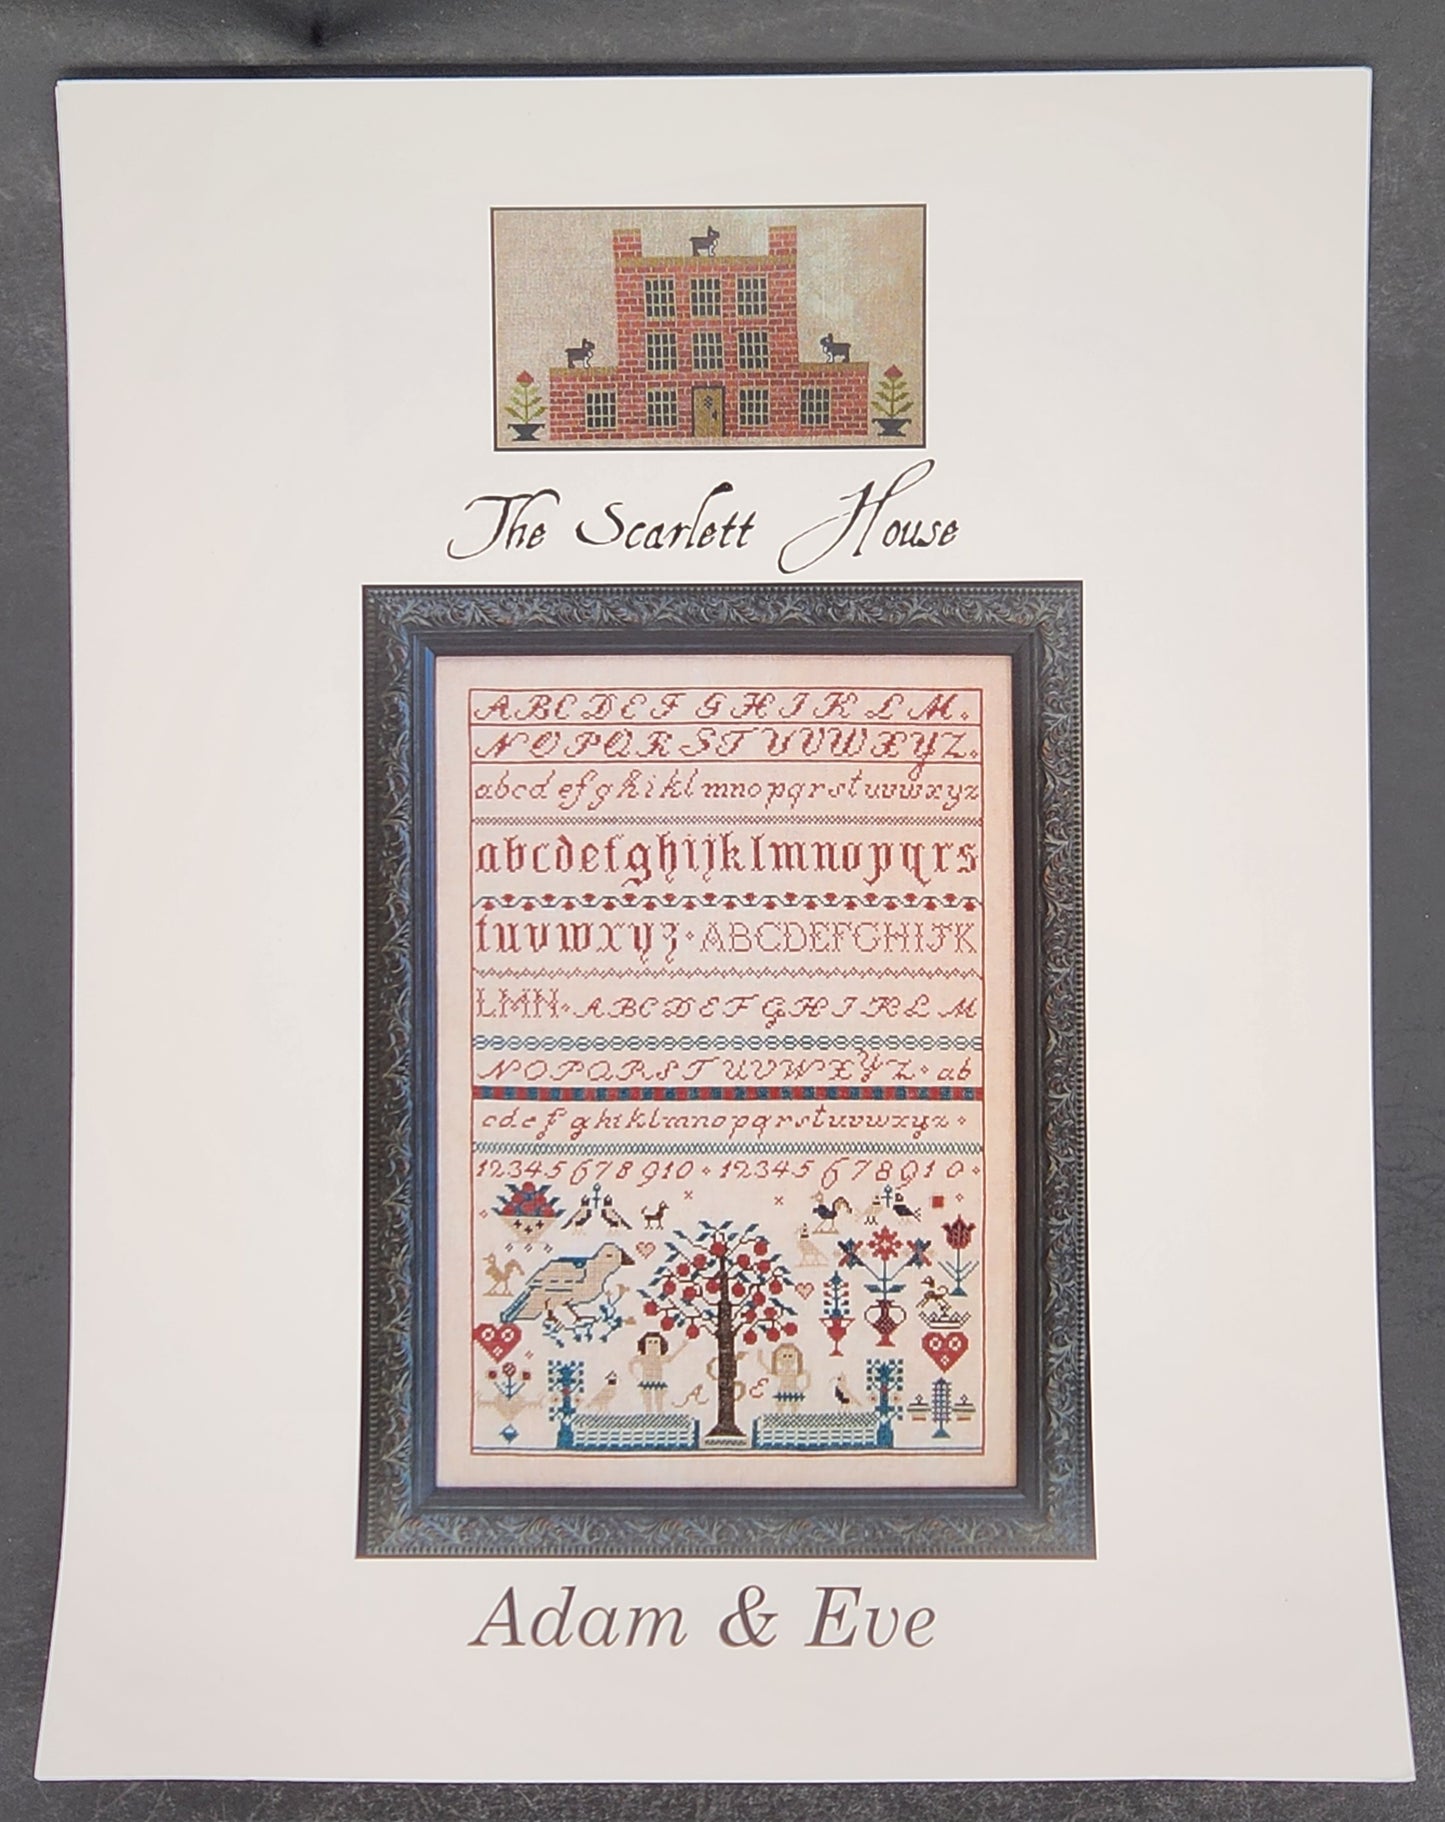 The Scarlett House
A B C D E F G H I K L M
N O P Q R S T U V W X Y Z
a b c d e f g h i k l m n o p q r s t u v w x y z
a b c d e f g h i j k l m n o p q r s
t u v w x y z A B C D E F G H I J K
L M N A B C D E F G H I K L M
N O P Q R S T U V W X Y Z a b
c d e f g h i k l m n o p q r s t u v w x y z
1 2 3 4 5 6 7 8 9 10 1 2 3 4 5 6 7 8 9 10
A E
Adam & Eve